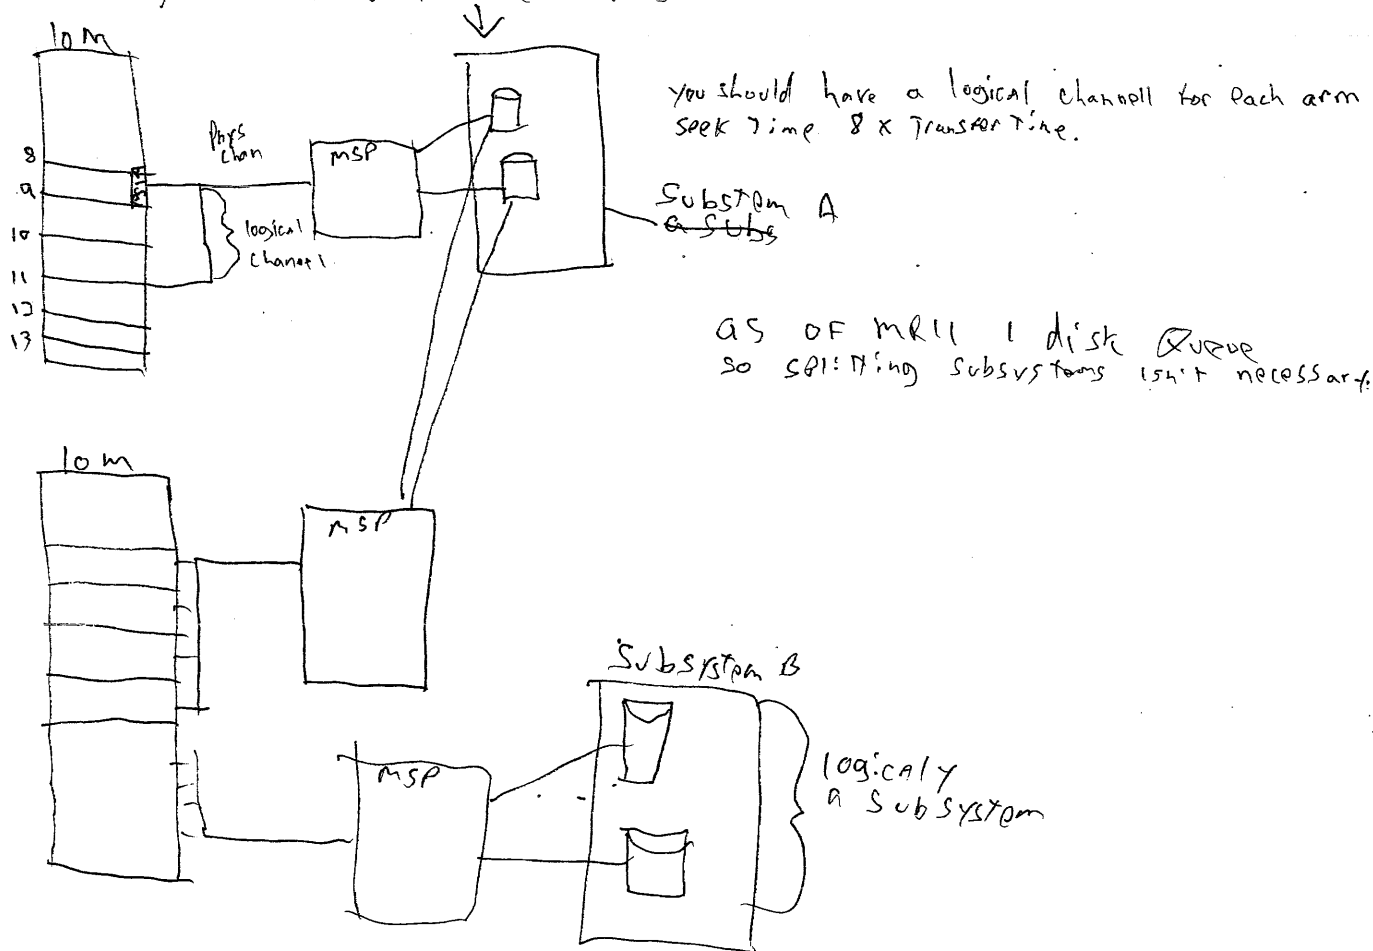 IOM
8
9
10
11
12
13
Phys
chan
logical
Channel
MSP
you should have a logical channell for each arm
seek Time 8 x Transfer Time.
Substem A
a Subs
as of MR11 1 disk Queue
so splitting subsystems isn't necessary.
IOM
MSP
Subsystem B
MSP
logicaly
a subsystem